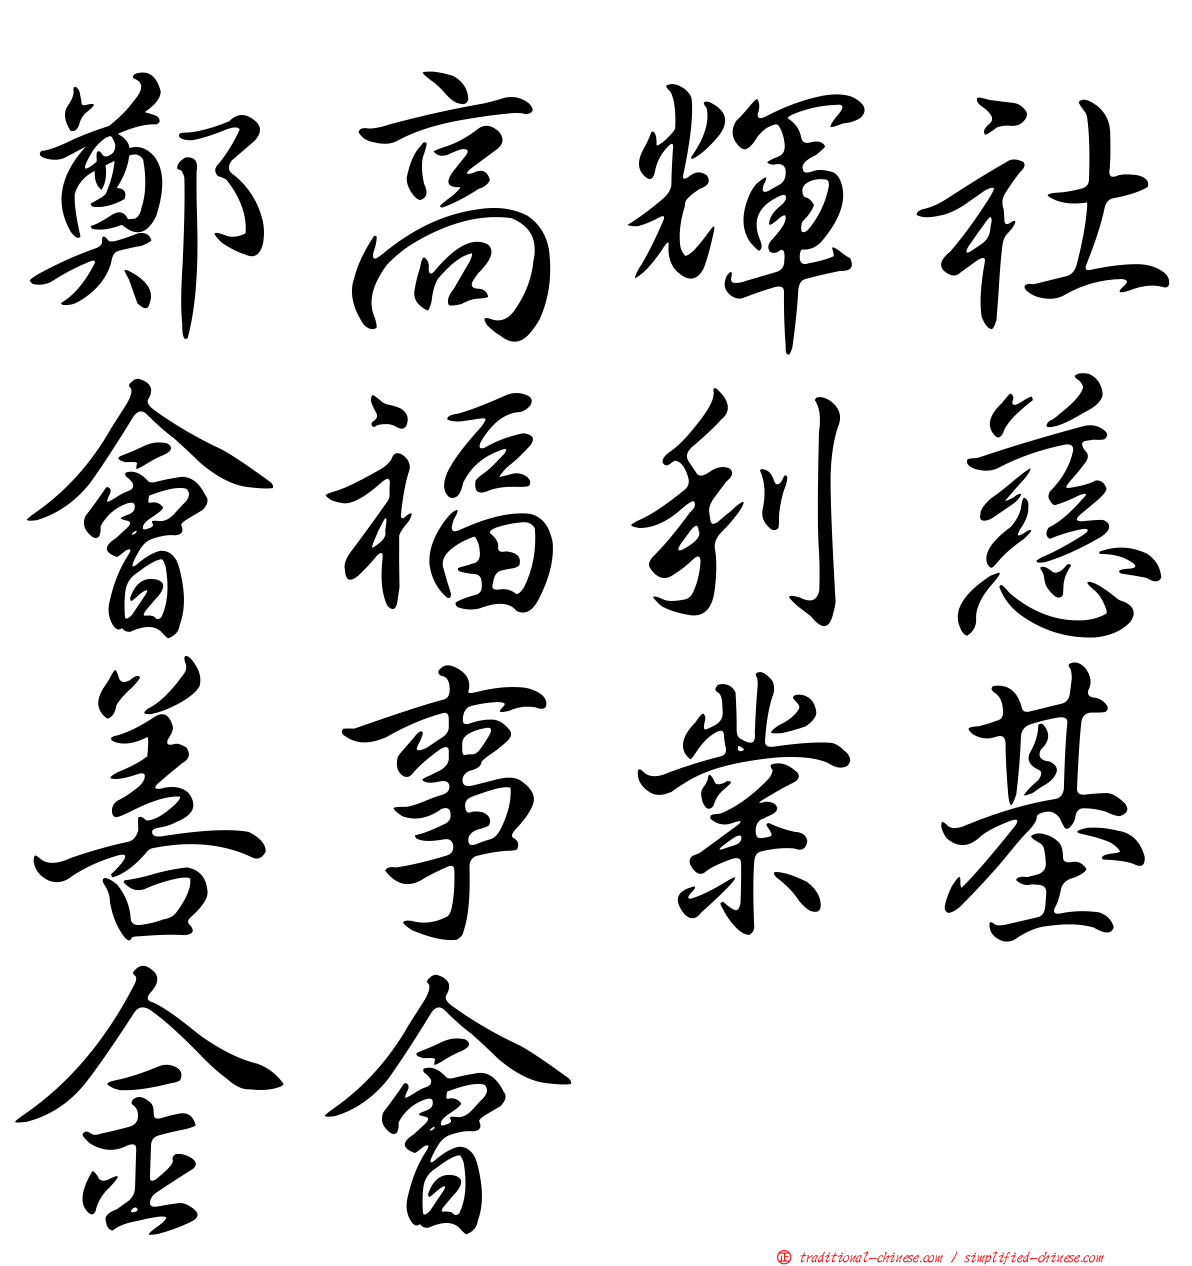 鄭高輝社
會福利慈
善事業基
金會
㊣ traditional-chinese.com / simplified-chinese.com